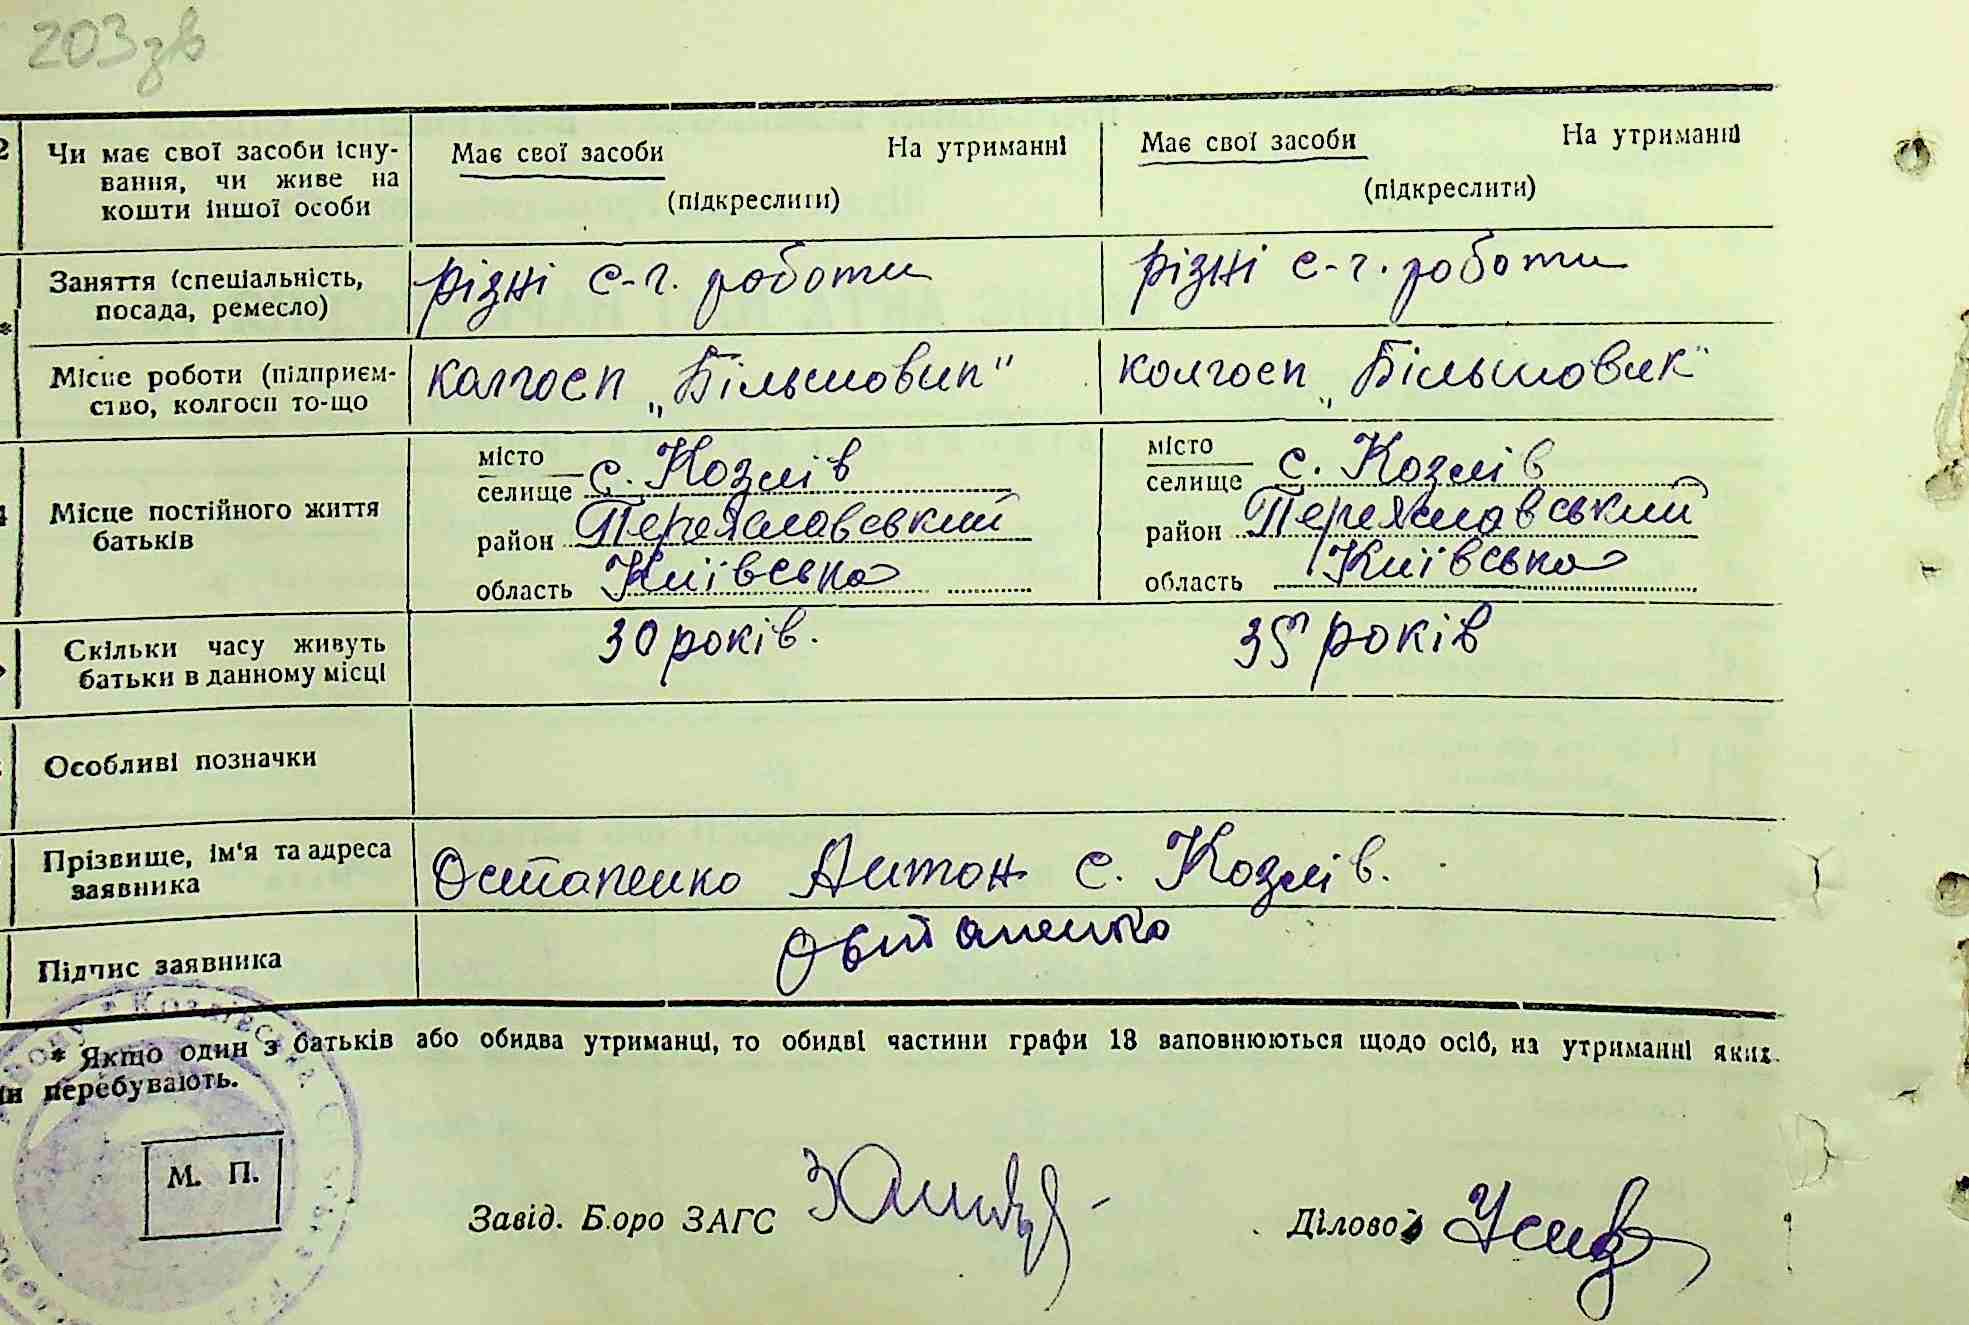 203 зв
2 Чи має свої засоби існу- Має свої засоби На утриманні Має свої засоби На утриманні
вання, чи живе на
кошти іншої особи (підкреслити) (підкреслити)
Заняття (спеціальність, різні с-г. роботи різні с-г. роботи
посада, ремесло)
*
Місце роботи (підприєм- колгосп „Більшовик" колгосп „Більшовик"
ство, колгосп то-що
місто с. Козлів місто с. Козлів
селище селище
4 Місце постійного життя район Переяславський район Переяславський
батьків
область Київська область Київська
Скільки часу живуть 30 років. 35 років
батьки в данному місці
Особливі позначки
Прізвище, ім'я та адреса Остапенко Антон с. Козлів.
заявника
Підпис заявника Остапенко
* Якщо один з батьків або обидва утриманці, то обидві частини графи 13 заповнюються щодо осіб, на утриманні яких
перебувають.
Козлівська
М. П.
Завід. Бюро ЗАГС Діловод